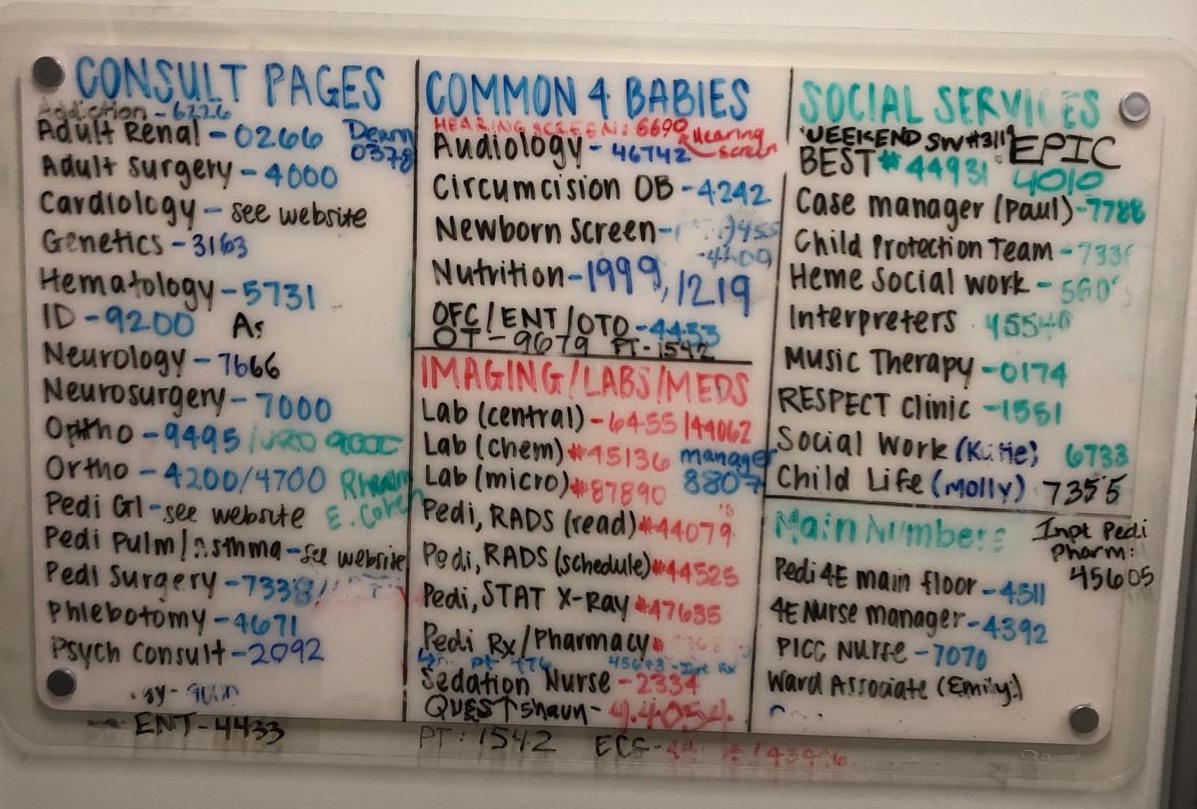 CONSULT PAGES
Addiction - 6226
Adult Renal - 0266
0378
Adult Surgery - 4000
Cardiology - see website
Genetics - 3163
Hematology - 5731
ID - 9200
Neurology - 7666
Neurosurgery - 7000
Optho - 9495
Ortho - 4200/4700
Pedi GI - see website
E.
Pedi Pulm/Asthma - see website
Pedi Surgery - 7338/
Phlebotomy - 4671
Psych Consult - 2092
ENT - 4433
COMMON 4 BABIES
HEARING SCREEN: 6690 Hearing
screen
Audiology - 46742
Circumcision OB - 4242
Newborn Screen -
Nutrition - 1999, 1219
OFC/ENT/OTO - 4433
OT - 9679 PT - 1542
IMAGING/LABS/MEDS
Lab (central) - 6455/44062
Lab (chem) #45136 manager
Lab (micro) #87890 8807
Pedi, RADS (read) #44079
Pedi, RADS (schedule) #44525
Pedi, STAT X-Ray #47635
Pedi Rx/Pharmacy #
Sedation Nurse - 2334
QUEST Shaun - 4.4054
PT: 1542 ECG -
SOCIAL SERVICES
WEEKEND SW #311
BEST #44931 EPIC
4010
Case manager (Paul) - 7788
Child Protection Team -
Heme Social work -
Interpreters 45540
Music Therapy - 0174
RESPECT Clinic - 1551
Social Work (Katie) 6733
Child Life (Molly) 7355
Main Numbers
Inpt Pedi
Pharm:
45605
Pedi 4E main floor - 4511
4E Nurse manager - 4392
PICC Nurse - 7070
Ward Associate (Emily:)